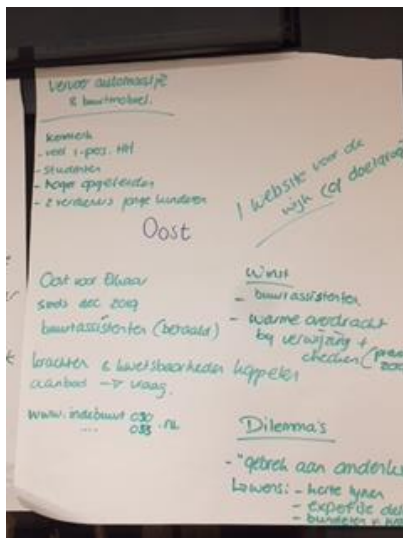 vervoer automaatje
& buurtmobiel.
kenmerk
- veel 1-pers. HH
- studenten
- hoger opgeleiden
- 2 verdieners jonge kinderen
1 website voor de
wijk (of doelgroep
Oost
Oost voor Elkaar
sinds dec 2019
buurtassistenten (betaald)
krachten & kwetsbaarheden koppelen
aanbod -> vraag.
www.indebuurt 030 .nu
.... 033
Winst
- buurtassistenten
- warme overdracht
bij verwijzing +
checken
Dilemma's
- "gebrek aan
- korte lijnen
- expertise
- bundelen